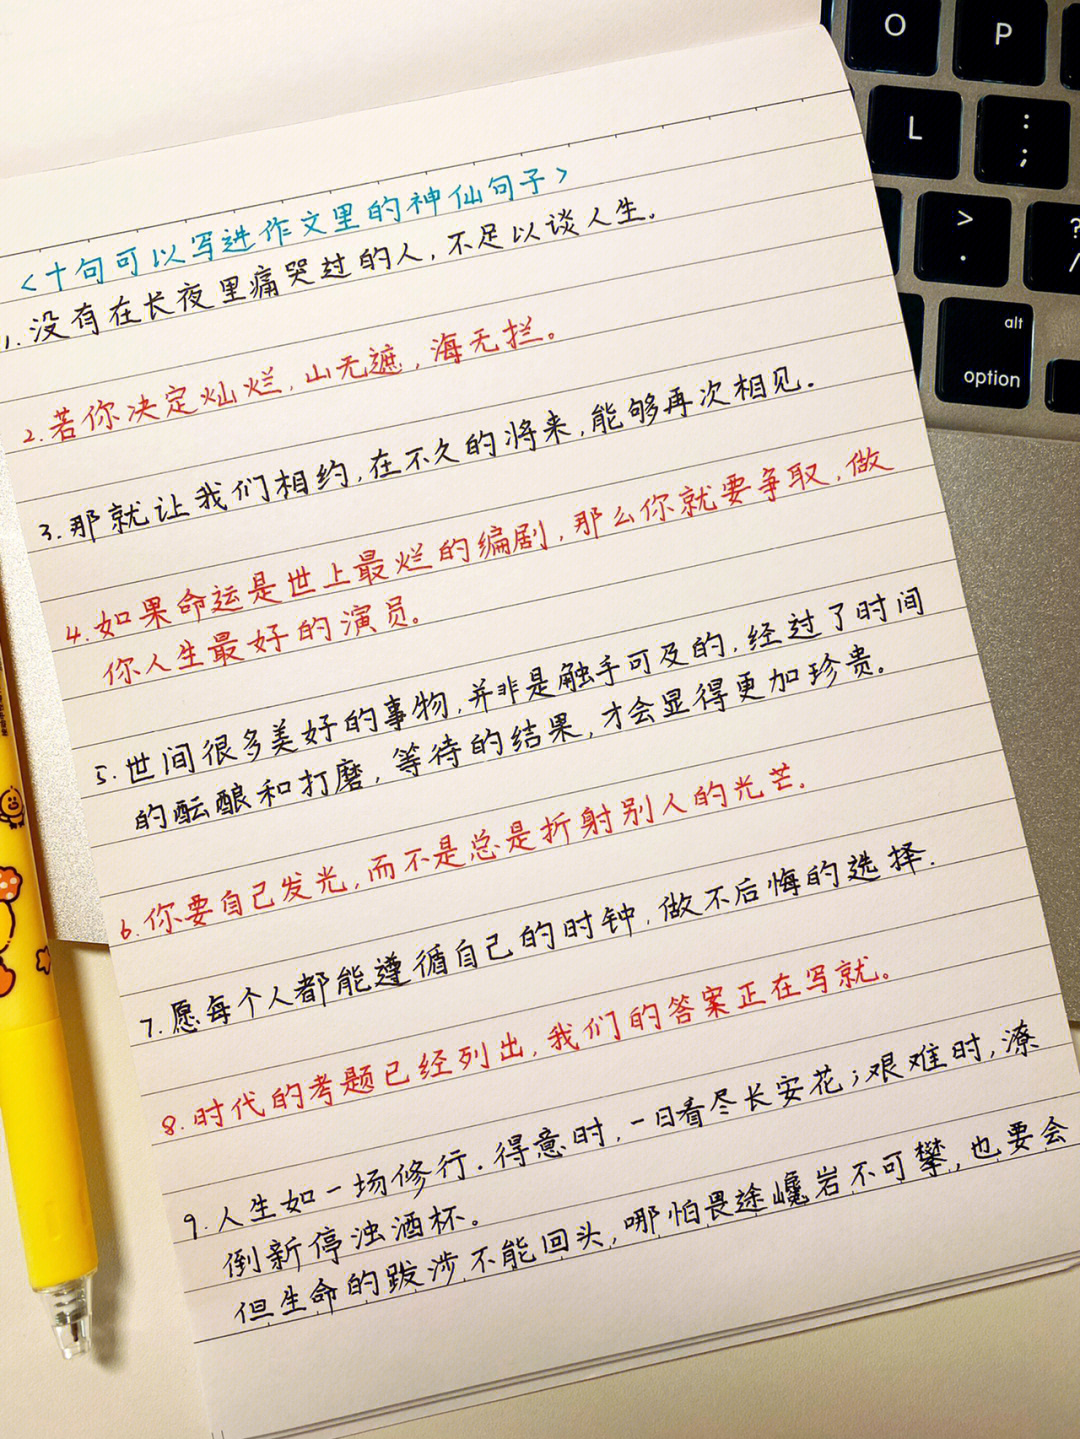 <十句可以写进作文里的神仙句子>
1.没有在长夜里痛哭过的人,不足以谈人生。
2.若你决定灿烂,山无遮,海无拦。
3.那就让我们相约,在不久的将来,能够再次相见.
4.如果命运是世上最烂的编剧,那么你就要争取,做
你人生最好的演员。
5.世间很多美好的事物,并非是触手可及的,经过了时间
的酝酿和打磨,等待的结果,才会显得更加珍贵。
6.你要自己发光,而不是总是折射别人的光芒.
7.愿每个人都能遵循自己的时钟,做不后悔的选择.
8.时代的考题已经列出,我们的答案正在写就。
9.人生如一场修行.得意时,一日看尽长安花;艰难时,潦
倒新停浊酒杯。
但生命的跋涉不能回头,哪怕畏途巉岩不可攀,也要会
O
P
L
:
;
>
.
?
/
alt
option